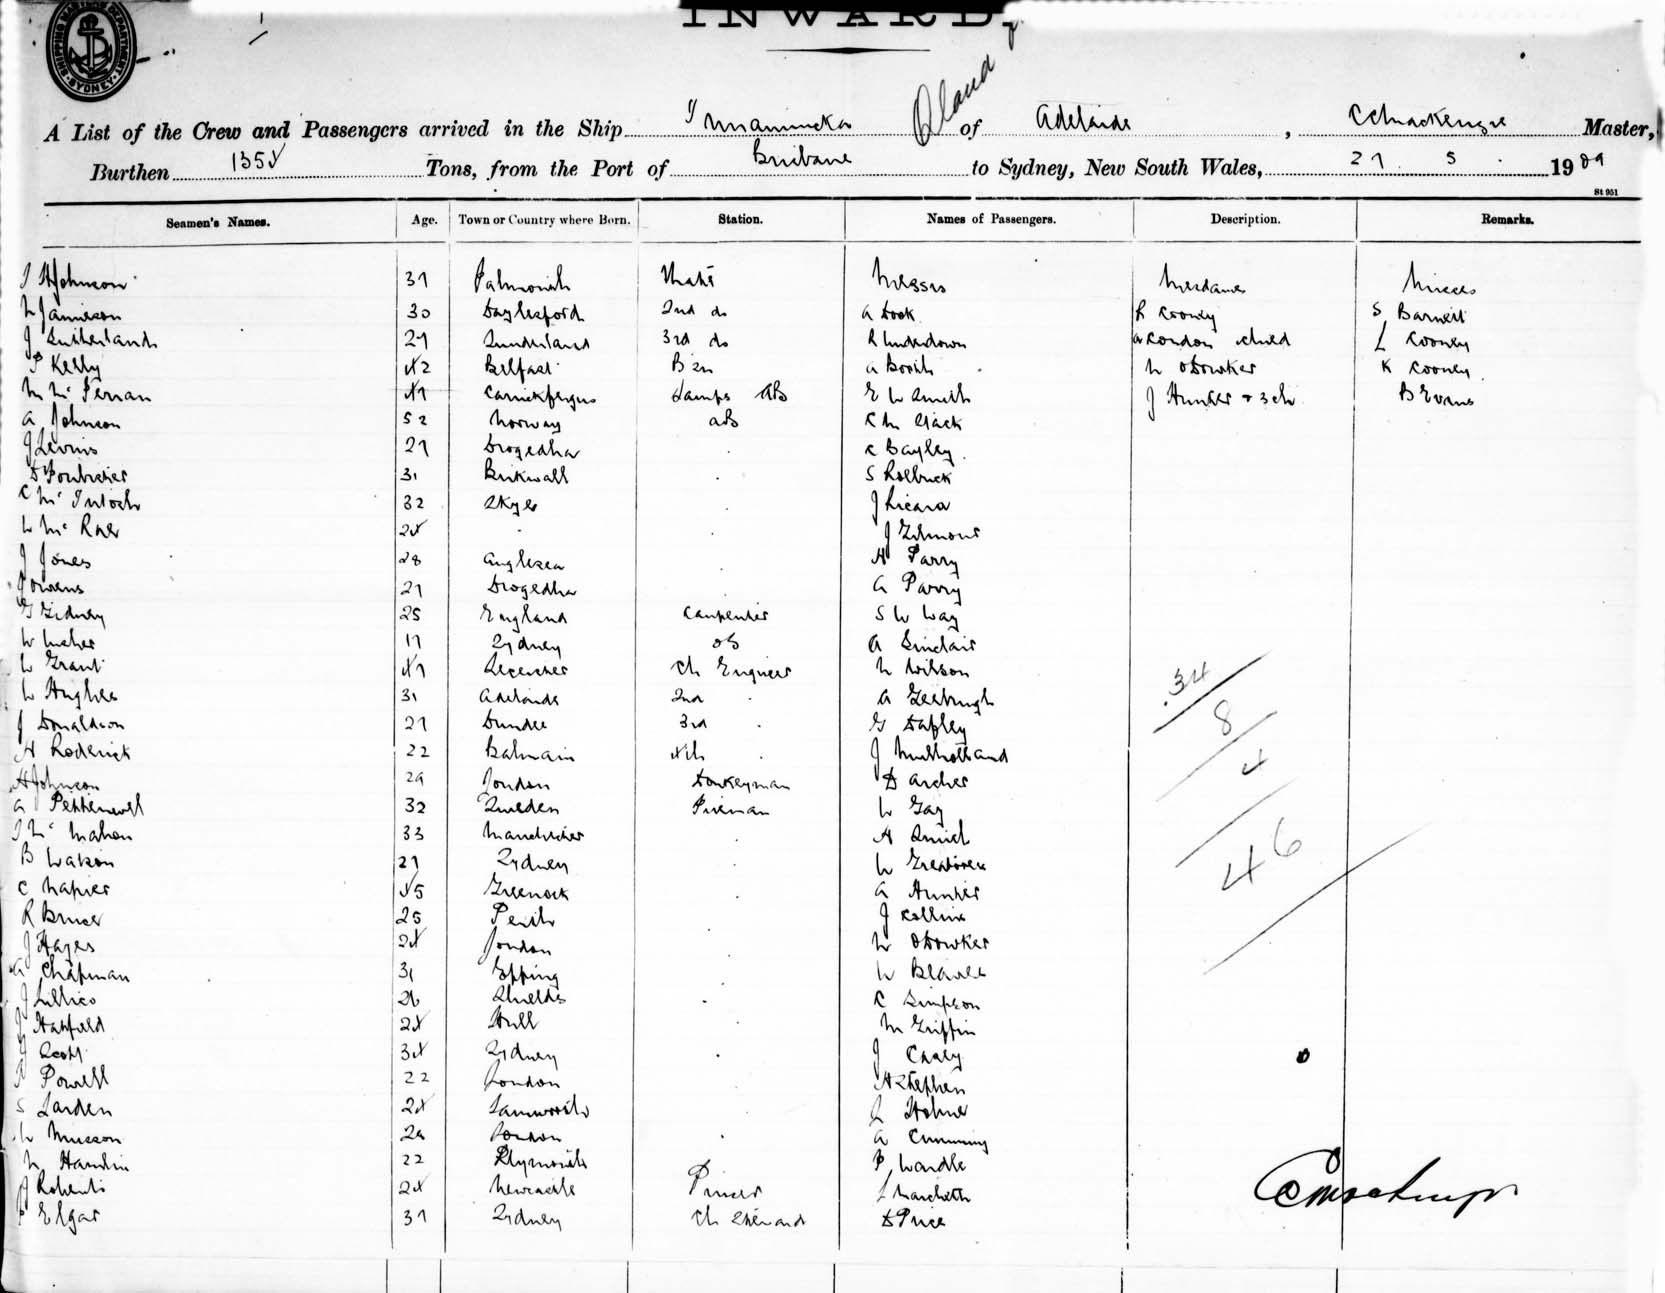 INWARD.
SHIPPING MASTERS DEPARTMENT SYDNEY
Qland
A List of the Crew and Passengers arrived in the Ship Innamincka of Adelaide , C C Mackenzie Master,
Burthen 1354 Tons, from the Port of Brisbane to Sydney, New South Wales, 27 . 5 . 1909
St 951
Seamen's Names. Age. Town or Country where Born. Station. Names of Passengers. Description. Remarks.
Johnson 37 Falmouth Mate Messrs Mesdames Misses
Jamieson 30 Daylesford 2nd do A Dook R Cooney S Barnett
J Sutherland 27 Sunderland 3rd do R Underdown A Condon child L Cooney
P Kelly 42 Belfast Bsn A Booth N ODowker K Cooney
M McFerran 47 Carrickfergus Lamps AB E W Smith J Hunter + 3 ch B Evans
A Johnson 52 Norway AB R M Clack
J Levins 27 Drogedha C Bayley
31 S Roebuck
C McIntosh 32 Skye J Ricara
W McRae 24 . J Gilmour
J Jones 28 Anglesea H Parry
J Owens 27 Drogedha A Parry
G Gidney 25 England Carpenter S W Way
W 17 Sydney OS A Sinclair
W Grant 47 Leicester Ch Engineer N Wilson
W Hughes 31 Adelaide 2nd . A
J Donaldson 27 Dundee 3rd . G Dafley
H Roderick 22 Balmain 4th . J Mulholland
H Johnson 29 London Donkeyman D Archer
A 32 Sweden Fireman W Gay
McMahon 33 Manchester H Smith
B Watson 27 Sydney W Greatorex
C Napier 45 Greenock A Hunter
R Bruce 25 Perth J Collins
J Hayes 24 London N ODowker
A Chapman 31 Epping W
J Lillico 26 Shields C Simpson
J Hatfield 24 Hull M Griffin
J Scott 34 Sydney J Casey
Powell 22 London H Stephen
S Larden 24 Tamworth L Holme
W Musson 29 London A Cumming
N Hamlin 22 Plymouth P Wardle
J Roberts 24 Newcastle L
P Elgar 37 Sydney Ch Steward D Price
34
8
4
46
C C Mackenzie